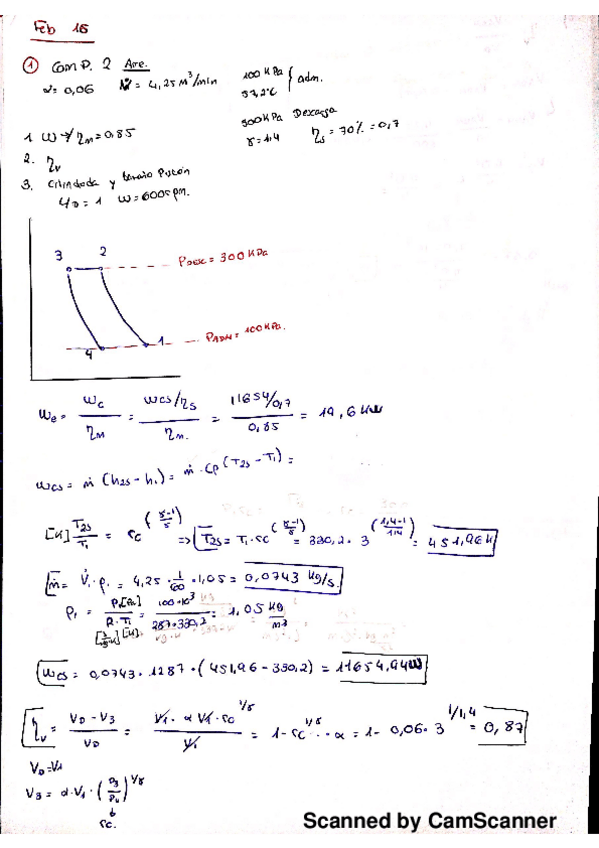 Feb 16
① Comp. 2 Aire.
α = 0,06 V̇ = 4,25 m³/min 100 KPa
57,2°C } adm.
300 KPa Descarga
γ = 1,4 ηs = 70% = 0,7
1. W → ηm = 0,85
2. ηv
3. Cilindrada y Pistón
L/D = 1 ω = 600 rpm.
3 2
PDESC = 300 KPa
PADM = 100 KPa.
4 1
We = Wc/ηM = (Wcs/ηs)/ηM = (11654/0,7)/0,85 = 19,6 KW
Wcs = ṁ (h2s - h1) = ṁ · Cp (T2s - T1) =
[K] T2s/T1 = rc^((γ-1)/γ) => T2s = T1 · rc^((γ-1)/γ) = 330,2 · 3^((1,4-1)/1,4) = 451,96 K
ṁ = V̇1 · ρ1 = 4,25 · 1/60 · 1,05 = 0,0743 Kg/s.
ρ1 = P1 [Pa]/(R · T1) = 100·10³/(287·330,2) = 1,05 Kg/m³
[J/Kg·K] [K]
Wcs = 0,0743 · 1287 · (451,96 - 330,2) = 11654,94 W
ηv = (VD - V3)/VD = (V1 · α V1 · rc^(1/γ))/V1 = 1 - rc^(1/γ) · α = 1 - 0,06 · 3^(1/1,4) = 0,87
VD = V1
V3 = α · V1 · (P3/P4)^(1/γ)
rc.
Scanned by CamScanner